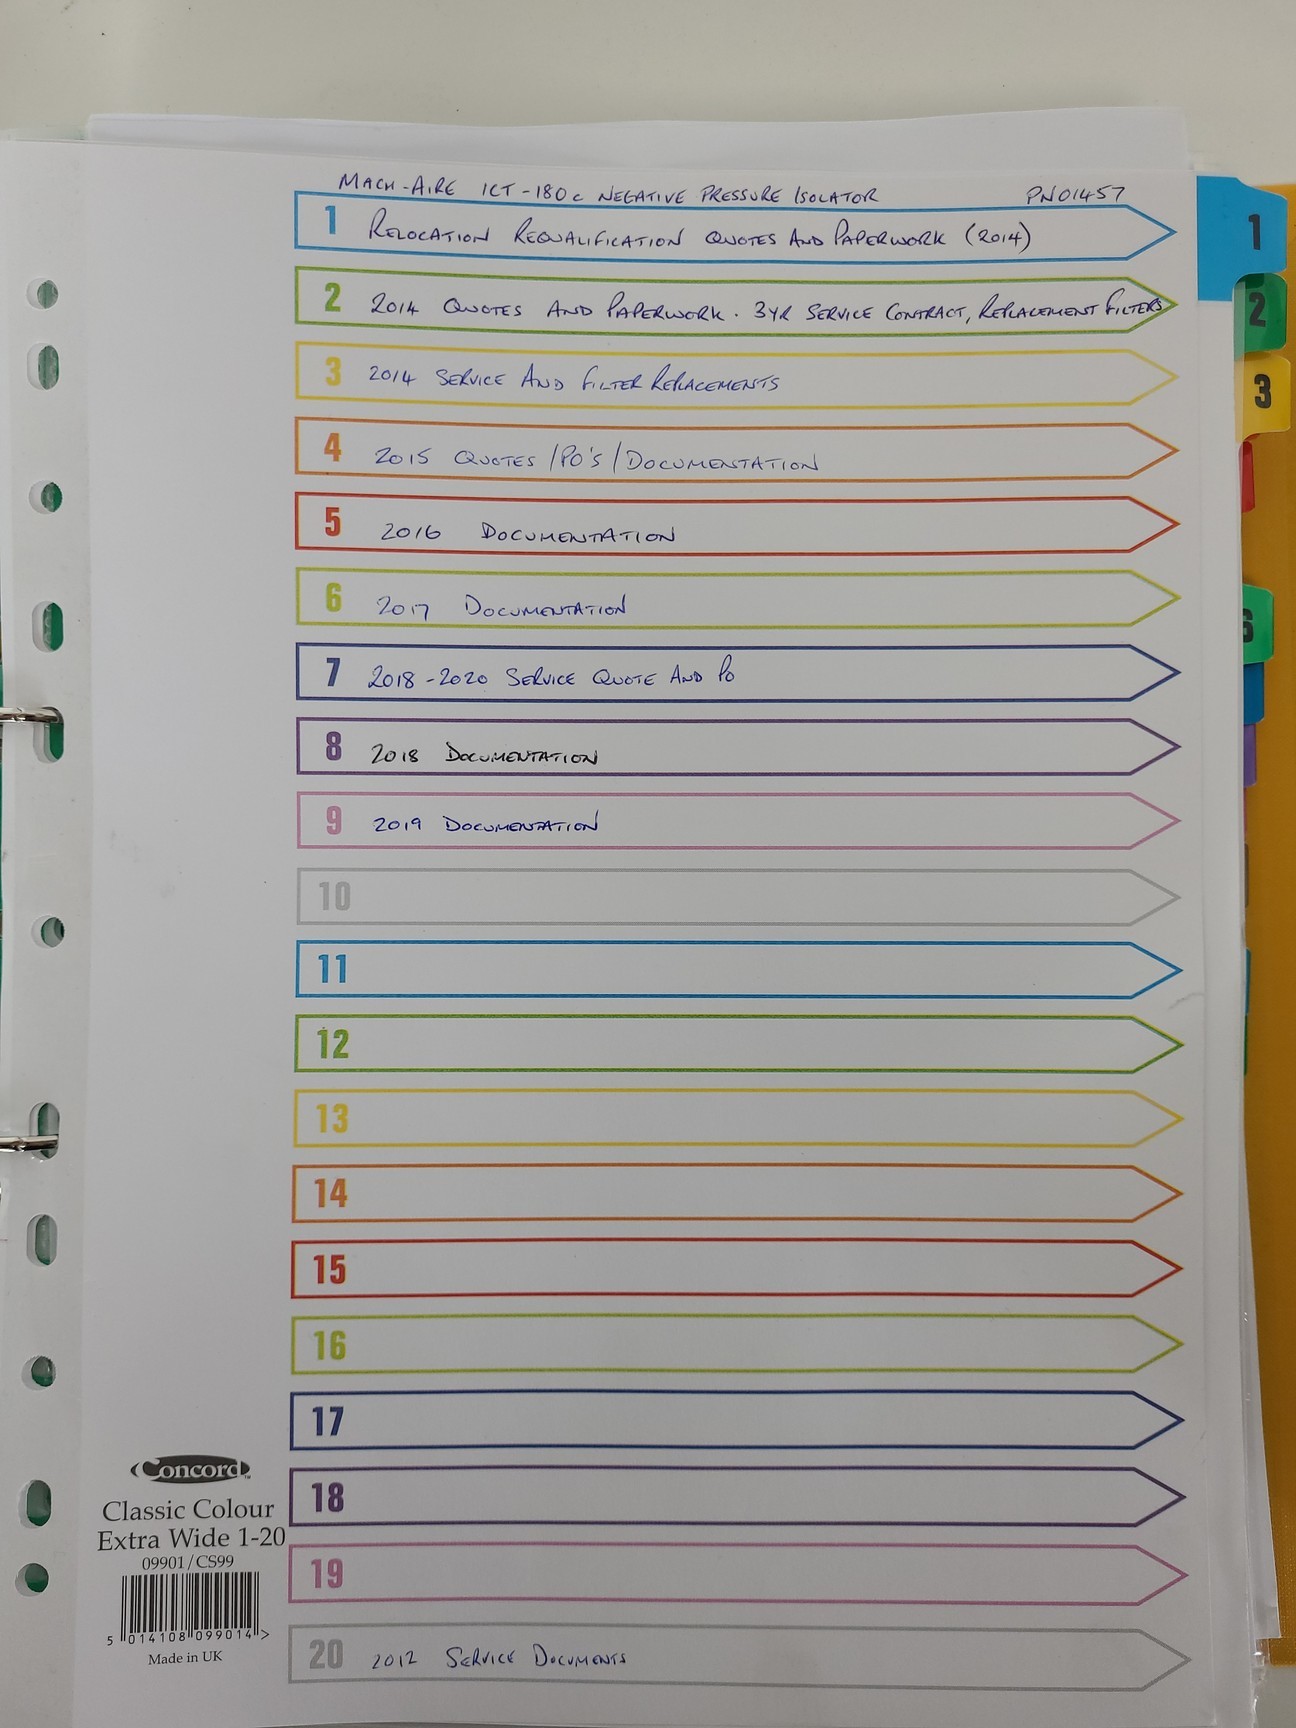 MACH-AIRE ICT-180c NEGATIVE PRESSURE ISOLATOR PN01457
1 RELOCATION REQUALIFICATION QUOTES AND PAPERWORK (2014)
2 2014 QUOTES AND PAPERWORK. 3YR SERVICE CONTRACT, REPLACEMENT FILTERS
3 2014 SERVICE AND FILTER REPLACEMENTS
4 2015 QUOTES / PO'S / DOCUMENTATION
5 2016 DOCUMENTATION
6 2017 DOCUMENTATION
7 2018-2020 SERVICE QUOTE AND PO
8 2018 DOCUMENTATION
9 2019 DOCUMENTATION
10
11
12
13
14
15
16
17
18
19
20 2012 SERVICE DOCUMENTS
Concord™
Classic Colour
Extra Wide 1-20
09901/CS99
5 014108 099014 >
Made in UK
1
2
3
6